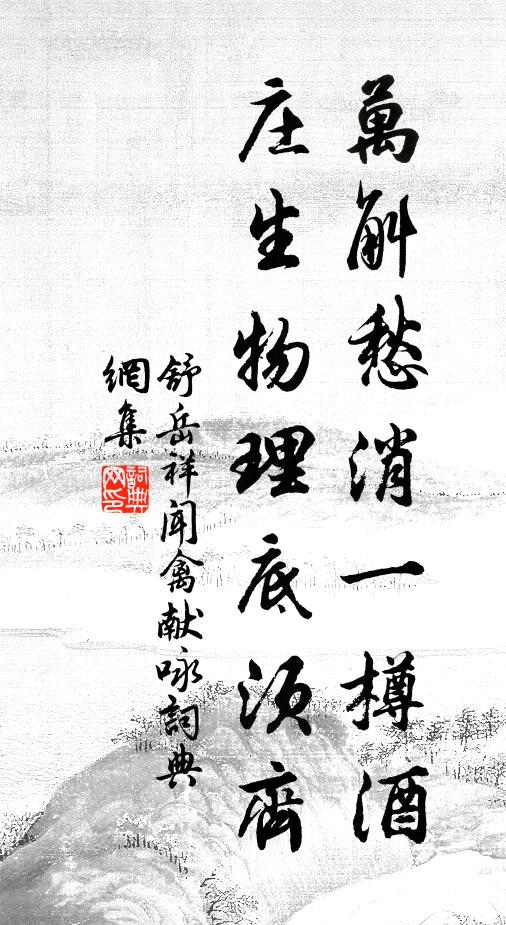 萬斛愁消一樽酒
庄生物理底須齊
舒岳祥聞禽献咏詞典
網集
詞典網印